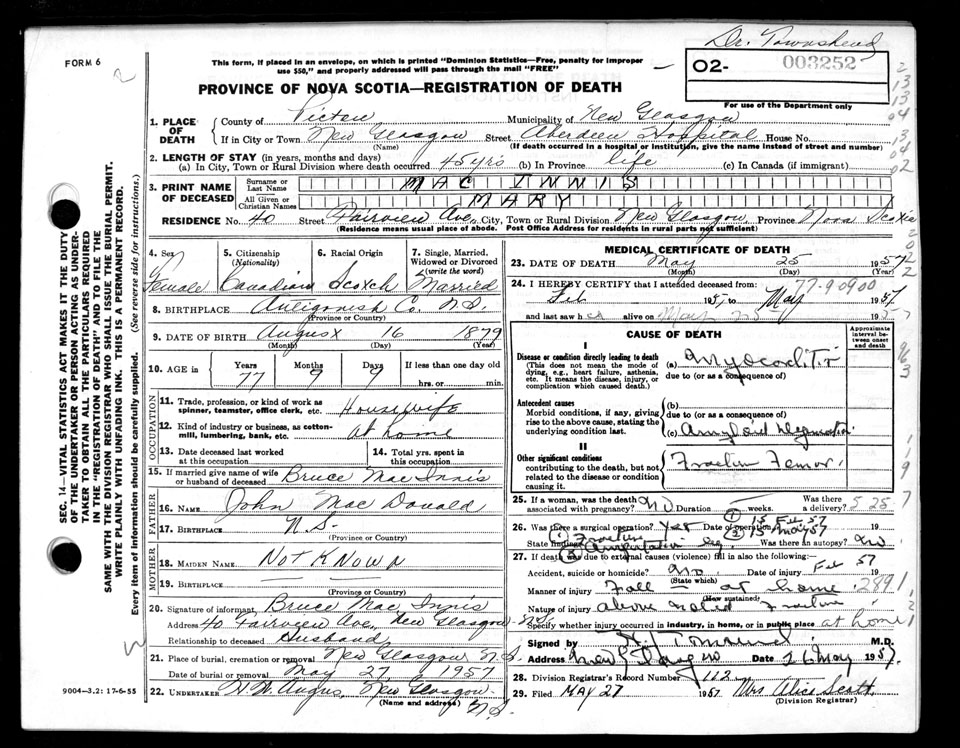 Dr. Townshend
FORM 6
This form, if placed in an envelope, on which is printed "Dominion Statistics—Free, penalty for improper
use $50," and properly addressed will pass through the mail "FREE"
02- 003252
For use of the Department only
PROVINCE OF NOVA SCOTIA—REGISTRATION OF DEATH
1. PLACE OF DEATH
County of Pictou Municipality of New Glasgow
If in City or Town New Glasgow Street Aberdeen Hospital House No.
(Name) (If death occurred in a hospital or institution, give the name instead of street and number)
2. LENGTH OF STAY (in years, months and days)
(a) In City, Town or Rural Division where death occurred 45 yrs (b) In Province life (c) In Canada (if immigrant)
3. PRINT NAME OF DECEASED
Surname or Last Name MAC INNIS
All Given or Christian Names MARY
RESIDENCE No. 40 Street Fairview Ave, City, Town or Rural Division New Glasgow, Province Nova Scotia
(Residence means usual place of abode. Post Office Address for residents in rural parts not sufficient)
4. Sex Female
5. Citizenship (Nationality) Canadian
6. Racial Origin Scotch
7. Single, Married, Widowed or Divorced (write the word) Married
8. BIRTHPLACE Antigonish Co. N.S.
(Province or Country)
9. DATE OF BIRTH August 16 1879
(Month) (Day) (Year)
10. AGE Years 77 Months 9 Days 9 If less than one day old
hrs. or min.
OCCUPATION
11. Trade, profession, or kind of work as spinner, teamster, office clerk, etc. Housewife
12. Kind of industry or business, as cotton-mill, lumbering, bank, etc. at home
13. Date deceased last worked at this occupation
14. Total yrs. spent in this occupation
15. If married give name of wife or husband of deceased Bruce Mac Innis
FATHER
16. Name John Mac Donald
17. BIRTHPLACE N.S.
(Province or Country)
MOTHER
18. MAIDEN NAME Not Known
19. BIRTHPLACE
(Province or Country)
20. Signature of informant Bruce Mac Innis
Address 40 Fairview Ave, New Glasgow N.S.
Relationship to deceased Husband
21. Place of burial, cremation or removal New Glasgow N.S.
Date of burial or removal May 27 1957
22. UNDERTAKER H.W. Angus New Glasgow N.S.
(Name and address)
9004—3.2: 17-6-55
MEDICAL CERTIFICATE OF DEATH
23. DATE OF DEATH May 25 1957
(Month) (Day) (Year)
24. I HEREBY CERTIFY that I attended deceased from: 77-9 0900
Feb 1957 to May 1957
and last saw her alive on May 25 1957
CAUSE OF DEATH
Approximate interval between onset and death
I
Disease or condition directly leading to death
(This does not mean the mode of dying, e.g., heart failure, asthenia, etc. It means the disease, injury, or complication which caused death.)
(a) Myocarditis
due to (or as a consequence of)
Antecedent causes
Morbid conditions, if any, giving rise to the above cause, stating the underlying condition last.
(b)
due to (or as a consequence of)
(c) Amyloid
II
Other significant conditions
contributing to the death, but not related to the disease or condition causing it.
Fracture Femur
25. If a woman, was the death associated with pregnancy? No weeks. Was there a delivery? 5 25 7
26. Was there a surgical operation? Yes Date of operation (1) 15 Feb 57 (2) 15 May 57 19
State findings (1) Fracture
(2) Amputation leg Was there an autopsy? No
27. If death was due to external causes (violence) fill in also the following:
Accident, suicide or homicide? Date of injury Feb 57 19
(State which)
Manner of injury Fall - at home 2891
(How sustained)
Nature of injury above noted Fracture
Specify whether injury occurred in industry, in home, or in public place at home
Signed by M.D.
Address New Glasgow Date 26 May 1957.
28. Division Registrar's Record Number 112
29. Filed MAY 27 1957 Mrs Alice Scott
(Division Registrar)
SEC. 14—VITAL STATISTICS ACT MAKES IT THE DUTY
OF THE UNDERTAKER OR PERSON ACTING AS UNDERTAKER
TO OBTAIN ALL THE PARTICULARS REQUIRED
IN THE "REGISTRATION OF DEATH" AND TO FILE THE
SAME WITH THE DIVISION REGISTRAR WHO SHALL ISSUE THE BURIAL PERMIT.
WRITE PLAINLY WITH UNFADING INK. THIS IS A PERMANENT RECORD.
Every item of information should be carefully supplied. (See reverse side for instructions.)